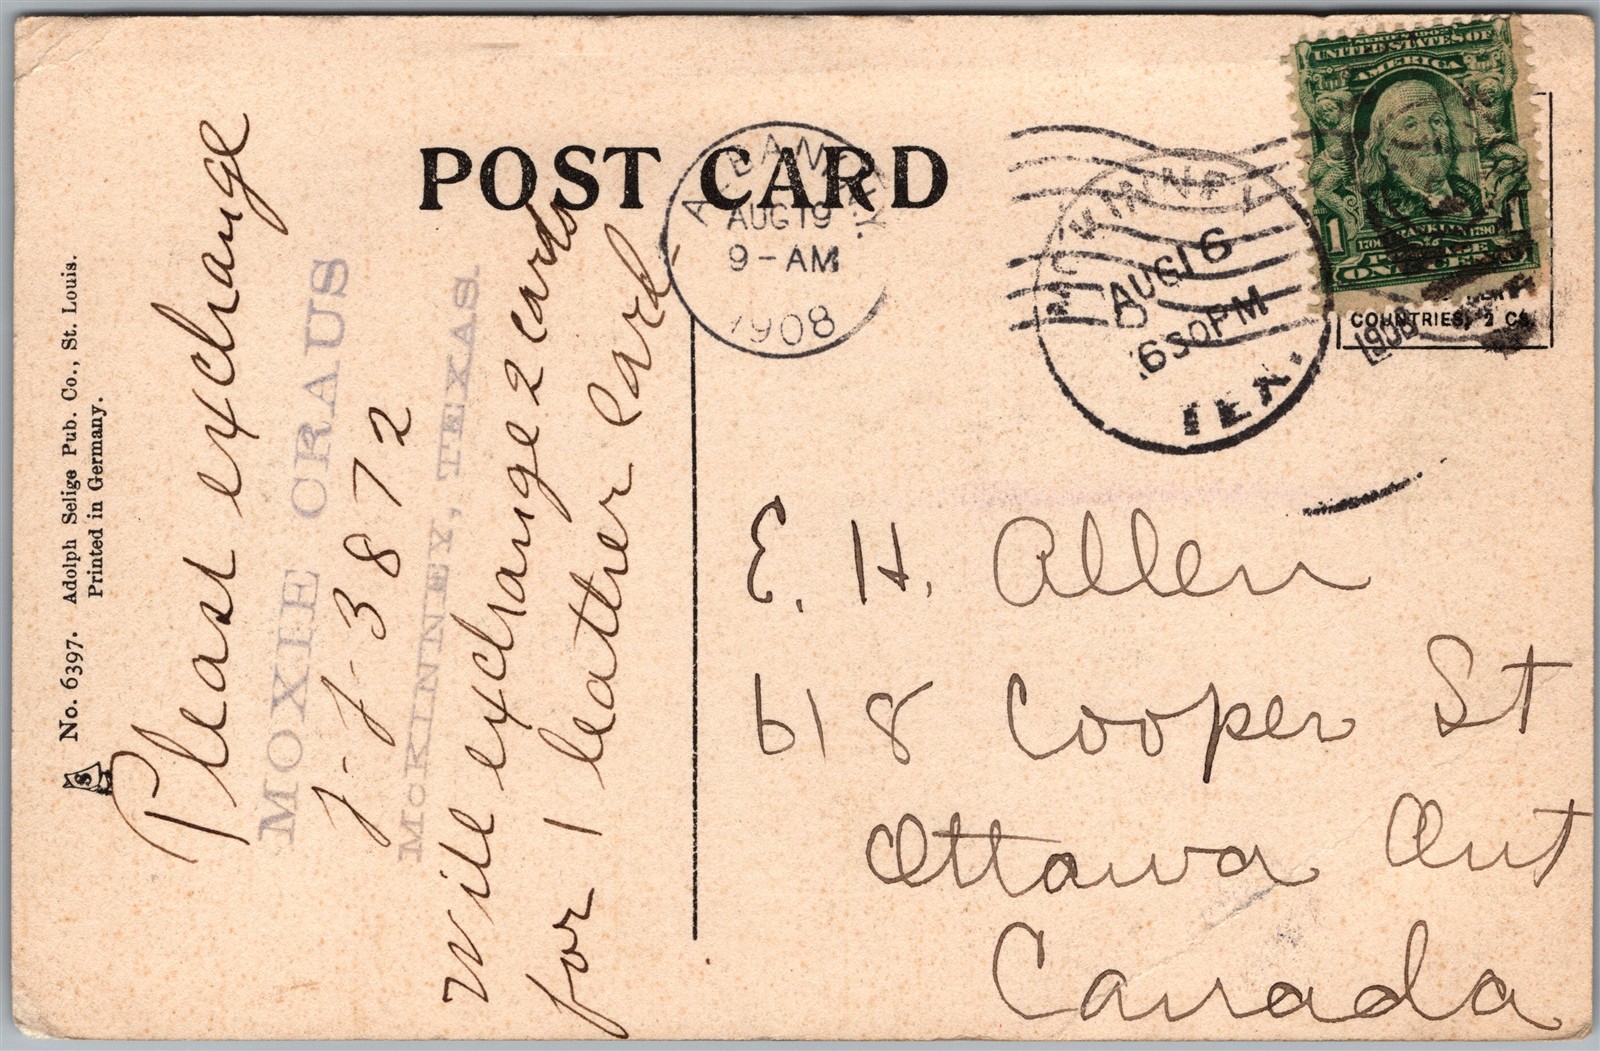 No. 6397. Adolph Selige Pub. Co., St. Louis.
Printed in Germany.
S
Please exchange
MOXIE CRAUS
J-J-3872
McKINNEY, TEXAS.
Will exchange 2 cards
for 1 leather card.
POST CARD
ALBANY
N.Y.
AUG 19
9-AM
1908
McKINNEY
AUG 16
630PM
1908
TEX.
SERIES 1902
UNITED STATES OF
AMERICA
FRANKLIN
1706 1790
1 1
ONE CENT
COUNTRIES, 2 Cs
E. H. Allen
618 Cooper St
Ottawa Ont
Canada